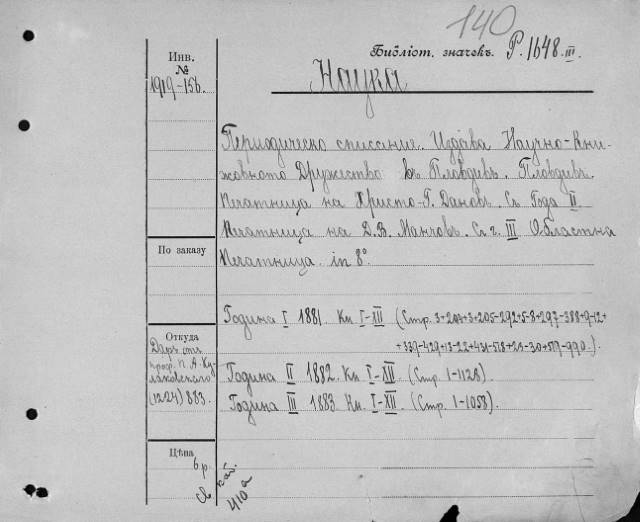 140
Библіот. значекъ. P. 1648. III.
Инв.
№
1919-156.
Наука
Периодическо списание. Издава Научно-Кни-
жовното Дружество въ Пловдивъ. Пловдивъ.
Печатница на Христо-Г. Дановъ. Съ Года II
Печатница на Д. В. Манчовъ. Съ г. III Областна
Печатница. in 8°.
По заказу
Година I 1881. Кн. I-XII (Стр. 3+204+3+205-292+5-8+297-388+9-12+
+339-429+13-22+431-518+21-30+519-990.).
Откуда
Даръ отъ
проф. П. А. Ку
лаковскаго
(1224) 883.
Година II 1882. Кн. I-XII (Стр. 1-1128).
Година III 1883 Кн. I-XII. (Стр. 1-1058).
Цѣна
6 р.
св кат.
410а